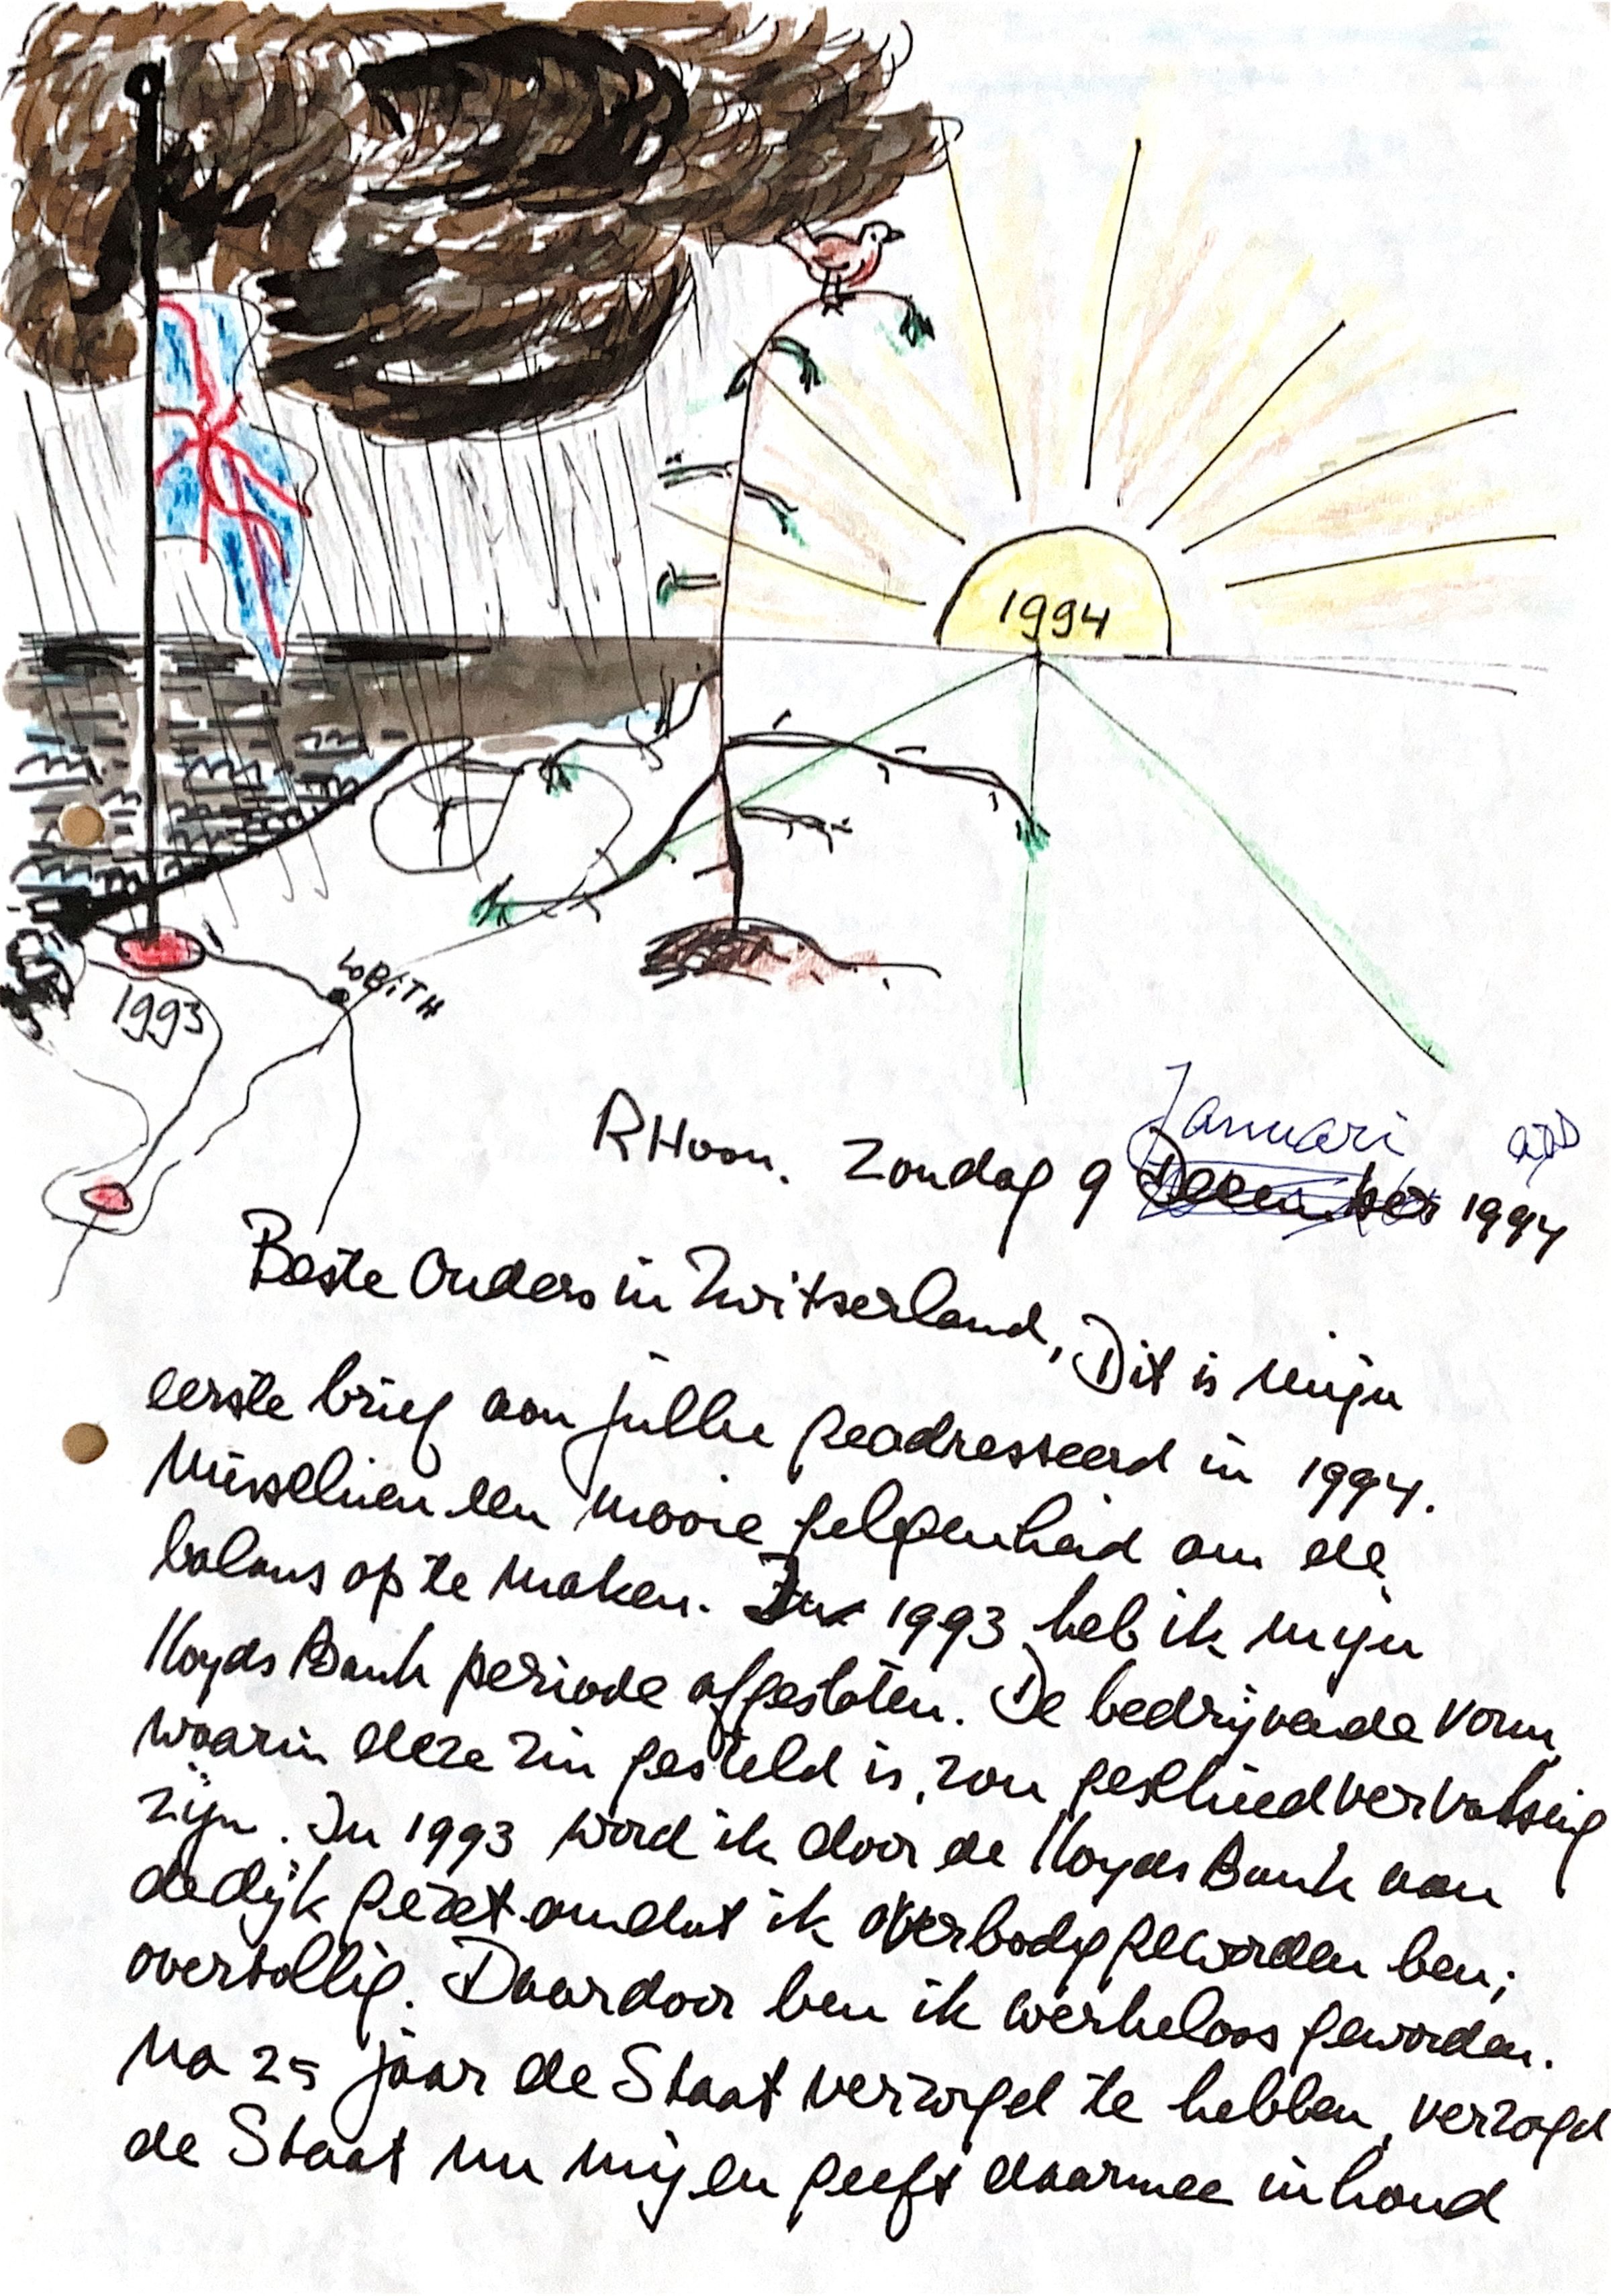 1994
LOBITH
1993
Januari
RHoon. Zondag 9 December 1994
Beste Ouders in Zwitserland, Dit is mijn
eerste brief aan jullie geadresseerd in 1994.
Misschien een mooie gelegenheid om de
balans op te maken. In 1993 heb ik mijn
Lloyds Bank periode afgesloten. De bedrijvende vorm
waarin deze zin gesteld is, zou geschiedvervalsing
zijn. In 1993 werd ik door de Lloyds Bank aan
de dijk gezet omdat ik overbodig geworden ben;
overtollig. Daardoor ben ik werkeloos geworden.
Na 25 jaar de Staat verzorgd te hebben, verzorgd
de Staat nu mij en geeft daarmee inhoud